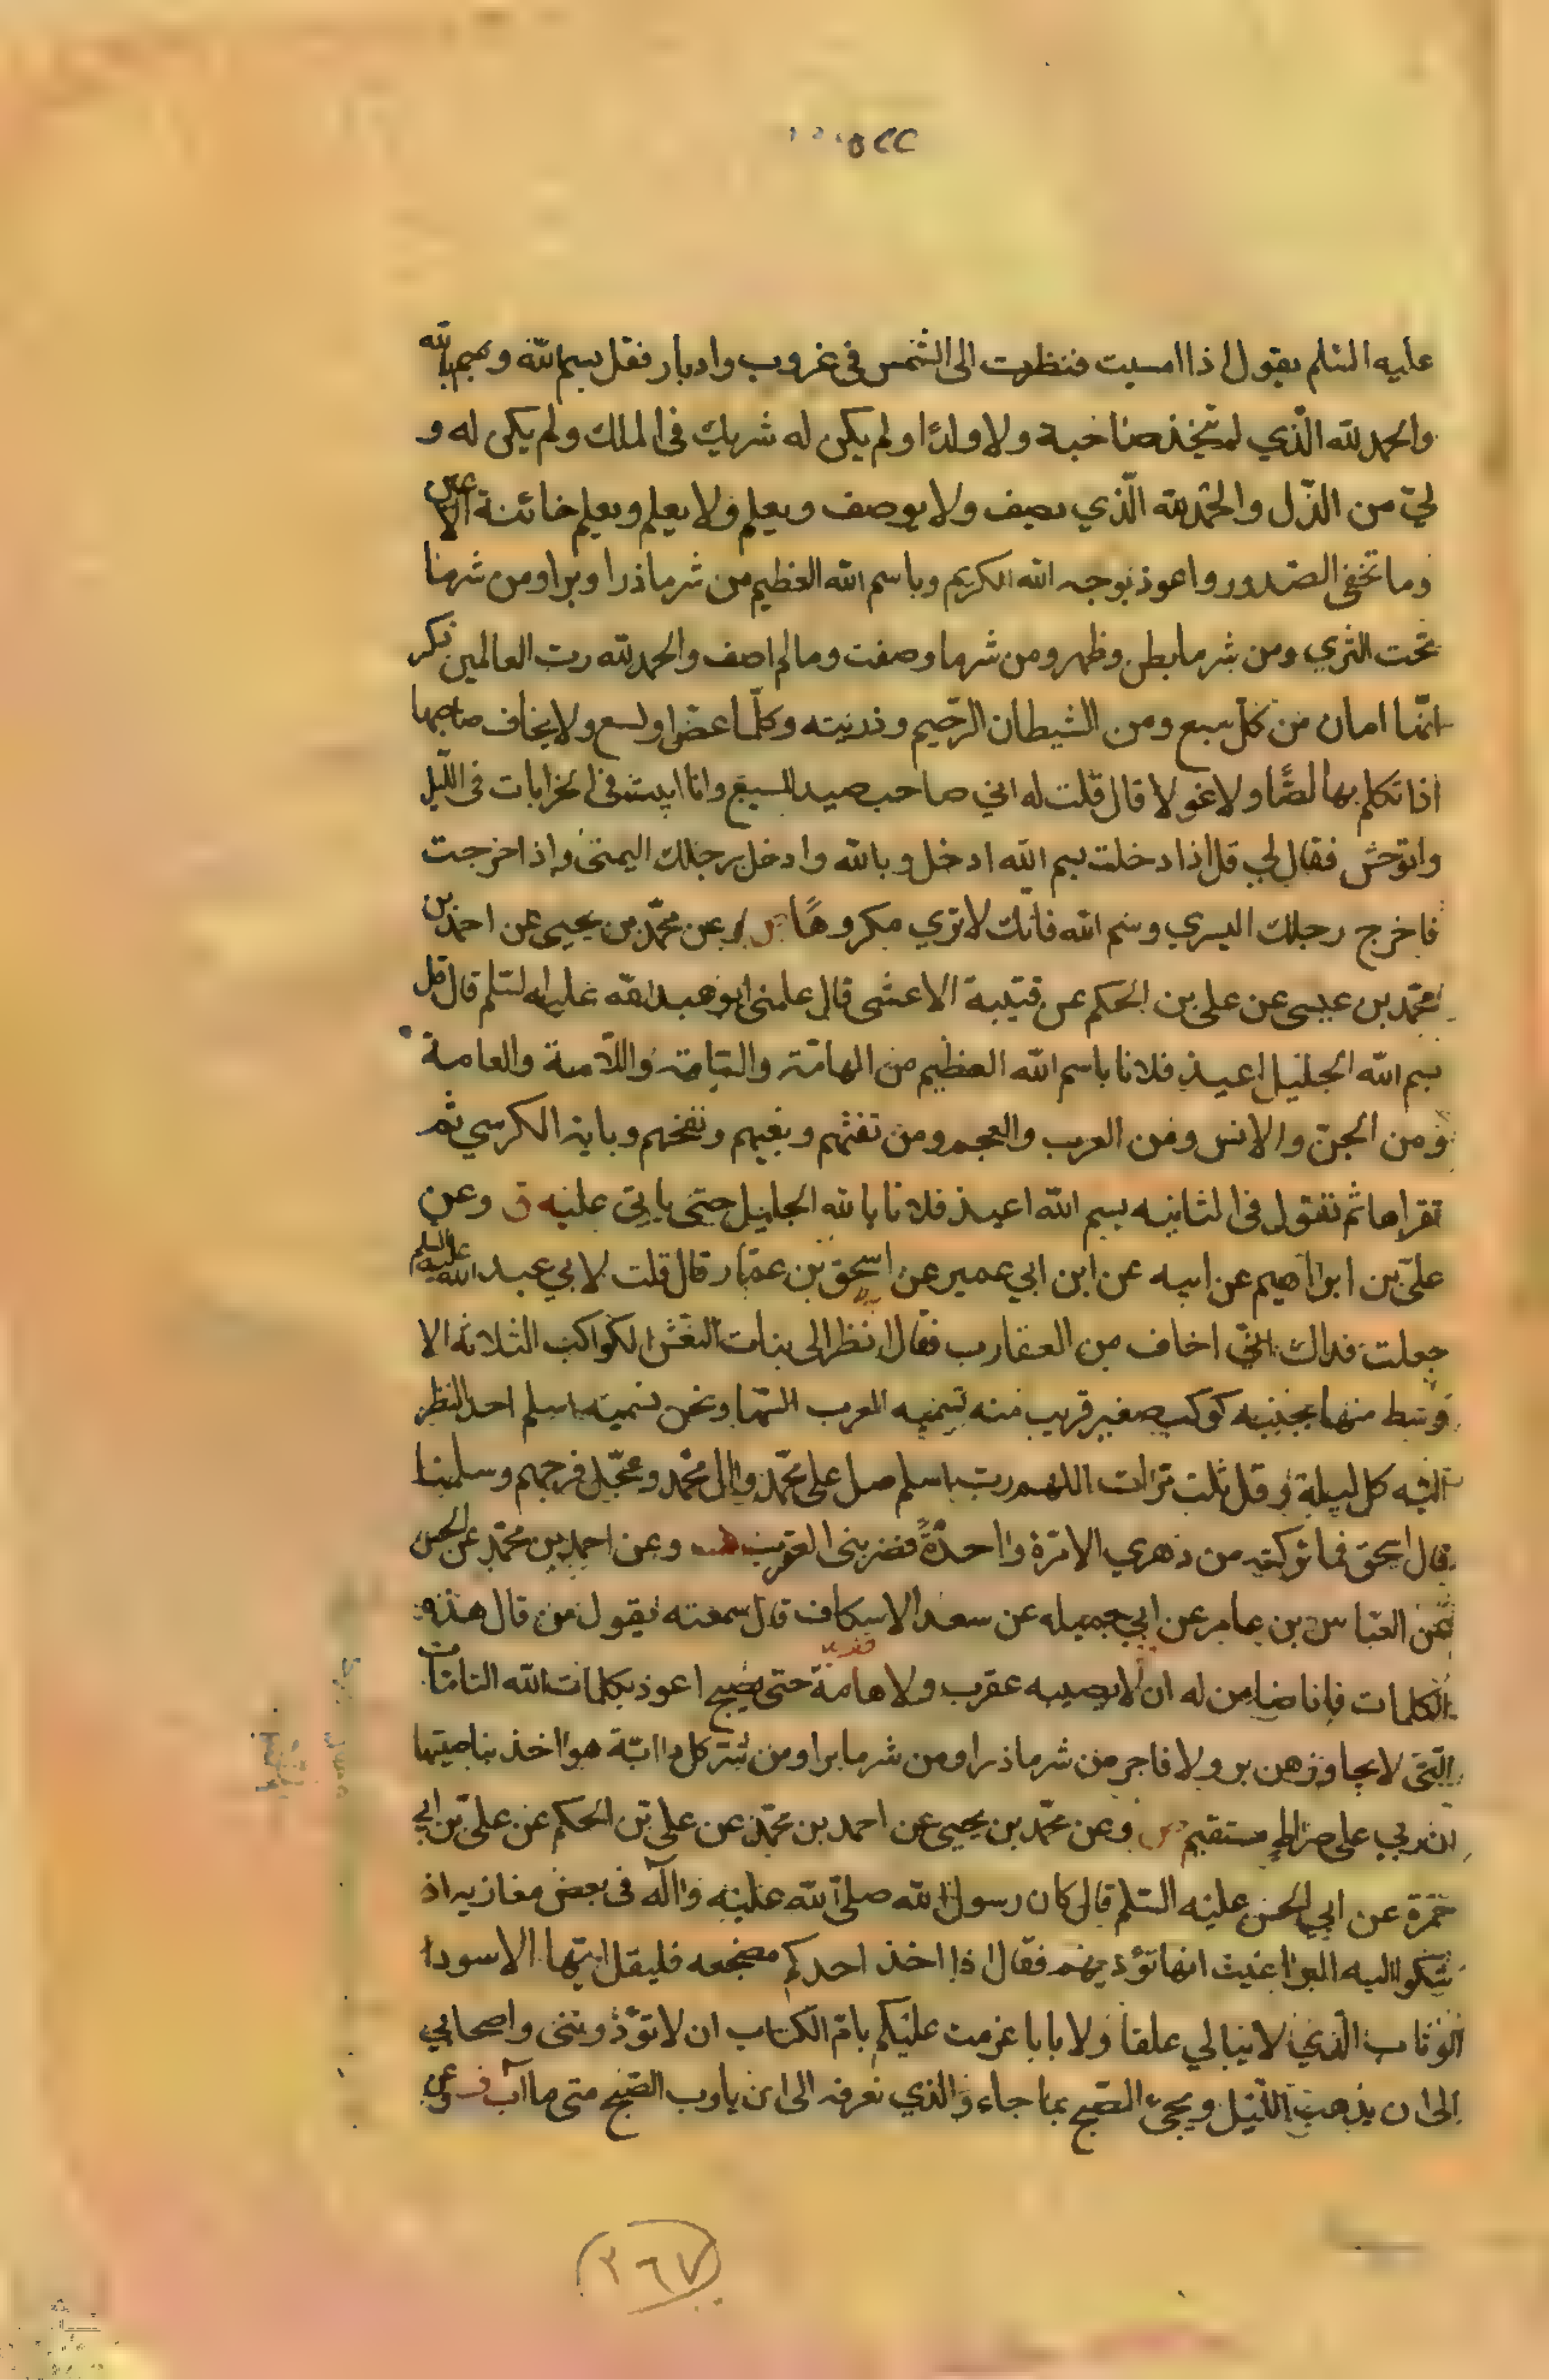 عليه السلم يقول اذا امسيت فنظرت الى الشمس فى غروب وادبار فقل بسم الله وبسم بالله
والحمد لله الّذي لم يتّخذ صاحبة ولا ولدًا ولم يكن له شريك فى الملك ولم يكن له و
ليّ من الذّل والحمد لله الّذي يصف ولا يوصف ويعلم ولا يعلم ويعلم خائنة الاعين
وما تخفى الصّدور واعوذ بوجه الله الكريم وباسم الله العظيم من شر ما ذرا وبرا ومن شر ما
تحت الثري ومن شر ما بطن وظهر ومن شر ما وصفت وما لم اصف والحمد لله ربّ العالمين ذكر
انّها امان من كلّ سبع ومن الشيطان الرّجيم وذريته وكلّما عضّ او لسع ولا يخاف صاحبها
اذا تكلم بها لصًّا ولا غولا قال قلت له اني صاحب صيد السبع وانا ابيت فى الخرابات فى اللّيل
واتوحّش فقال لي قل اذا دخلت بسم الله ادخل وبالله وادخل رجلك اليمنى واذا خرجت
فاخرج رجلك اليسري وسم الله فانّك لا تري مكروهًا وعن محمّد بن يحيى عن احمد بن
محمّد بن عيسى عن على بن الحكم عن قتيبة الاعشى قال علمنى ابو عبد الله عليه السلم قال قل
بسم الله الجليل اعيذ فلانا باسم الله العظيم من الهامّة والسّامّة واللّامة والعامة
ومن الجنّ والانس ومن العرب والعجم ومن نفثهم وبغيهم ونفخهم وباية الكرسي ثم
تقراها ثم تقول فى الثانيه بسم الله اعيذ فلانا بالله الجليل حتى ياتى عليه ق وعن
علىّ بن ابراهيم عن ابيه عن ابن ابي عمير عن اسحق بن عمّار قال قلت لابي عبد الله عليه السلم
جعلت فداك انّي اخاف من العقارب فقال انظر الى بنات النّعش الكواكب الثلاثه الا
وسط منها بجنبه كوكب صغير قريب منه تسميه العرب السّها ونحن نسميه اسلم احد النظر
اليه كل ليلة وقل ثلث مرّات اللهم ربّ اسلم صل على محمّد وال محمّد وعجّل فرجهم وسلمنا
قال اسحق فما تركته من دهري الا مرّة واحدةً فضربنى العقرب وعن احمد بن محمّد عن الحسن
عن العبّاس بن عامر عن ابي جميله عن سعد الاسكاف قال سمعته يقول من قال هذه
الكلمات فانا ضامن له ان لا يصيبه عقرب ولا هامّة حتى يصبح اعوذ بكلمات الله التامّات
الّتى لا يجاوزهن بر ولا فاجر من شر ما ذرا ومن شر ما برا ومن شر كل دابّة هو اخذ بناصيتها
ان ربي على صراطٍ مستقيم وعن محمّد بن يحيى عن احمد بن محمّد عن على بن الحكم عن علىّ بن ابي
حمزة عن ابي الحسن عليه السّلم قال كان رسول الله صلّى الله عليه واله فى بعض مغازيه اذ
شكوا اليه البراغيث انها تؤذيهم فقال اذا اخذ احدكم مضجعه فليقل ايّها الاسود ا
لوثاب الّذي لا يبالي علقا ولا بابا عزمت عليكم بامّ الكتاب ان لا تؤذوننى واصحابي
الى ان يذهب اللّيل ويجيء الصّبح بما جاء والذي نعرفه الى ان ياوب الصّبح متى ما آب وعن
٢٦٧